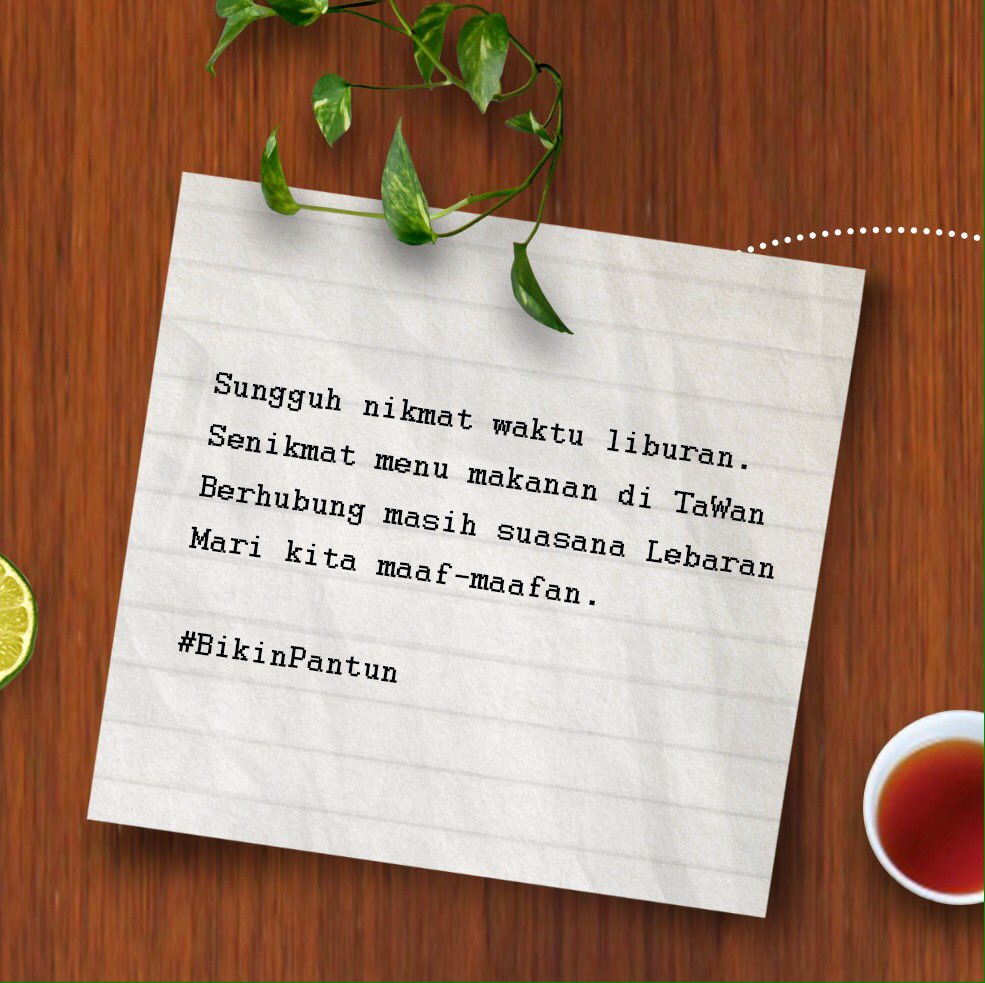 Sungguh nikmat waktu liburan.
Senikmat menu makanan di TaWan
Berhubung masih suasana Lebaran
Mari kita maaf-maafan.
#BikinPantun